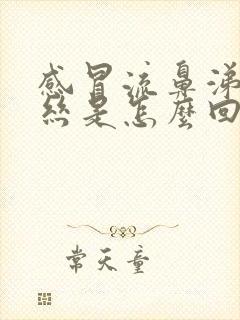 感冒流鼻涕
丝是怎麼回
常天童